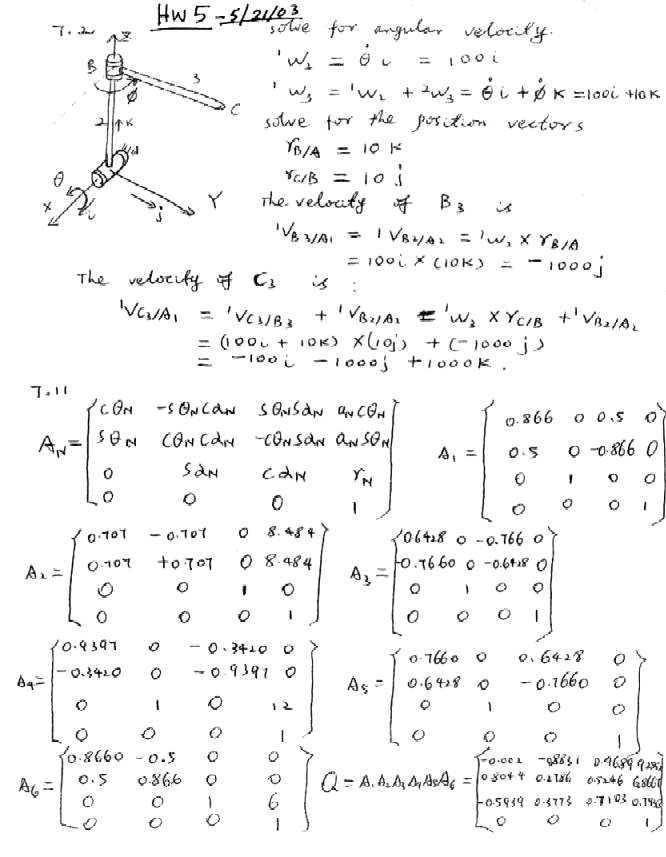 HW 5 - 5/21/03
7.2
solve for angular velocity.
¹W₂ = θ̇ i = 100 i
¹W₃ = ¹W₂ + ²W₃ = θ̇ i + φ̇ K = 100i + 10K
solve for the position vectors
r_B/A = 10 K
r_C/B = 10 j
The velocity of B₃ is
¹V_B3/A1 = ¹V_B2/A2 = ¹W₂ × r_B/A
= 100i × (10K) = -1000j
Z
B
φ
3
C
2
K
θ
X
i
j
Y
The velocity of C₃ is :
¹V_C3/A1 = ¹V_C3/B3 + ¹V_B2/A2 = ¹W₃ × r_C/B + ¹V_B2/A2
= (100i + 10K) × (10j) + (-1000j)
= -100i - 1000j + 1000K.
7.11
A_N =
Cθ_N -Sθ_N Cα_N Sθ_N Sα_N a_N Cθ_N
Sθ_N Cθ_N Cα_N -Cθ_N Sα_N a_N Sθ_N
0 Sα_N Cα_N r_N
0 0 0 1
A₁ =
0.866 0 0.5 0
0.5 0 -0.866 0
0 1 0 0
0 0 0 1
A₂ =
0.707 -0.707 0 8.484
0.707 +0.707 0 8.484
0 0 1 0
0 0 0 1
A₃ =
0.6428 0 -0.766 0
-0.7660 0 -0.6428 0
0 1 0 0
0 0 0 1
A₄ =
0.9397 0 -0.3420 0
-0.3420 0 -0.9397 0
0 1 0 12
0 0 0 1
A₅ =
0.7660 0 0.6428 0
0.6428 0 -0.7660 0
0 1 0 0
0 0 0 1
A₆ =
0.8660 -0.5 0 0
0.5 0.866 0 0
0 0 1 6
0 0 0 1
Q = A₁A₂A₃A₄A₅A₆ =
-0.002 -0.8831 0.4689
0.8044 0.2786 0.5246
-0.5939 0.3773 0.7103
0 0 0 1